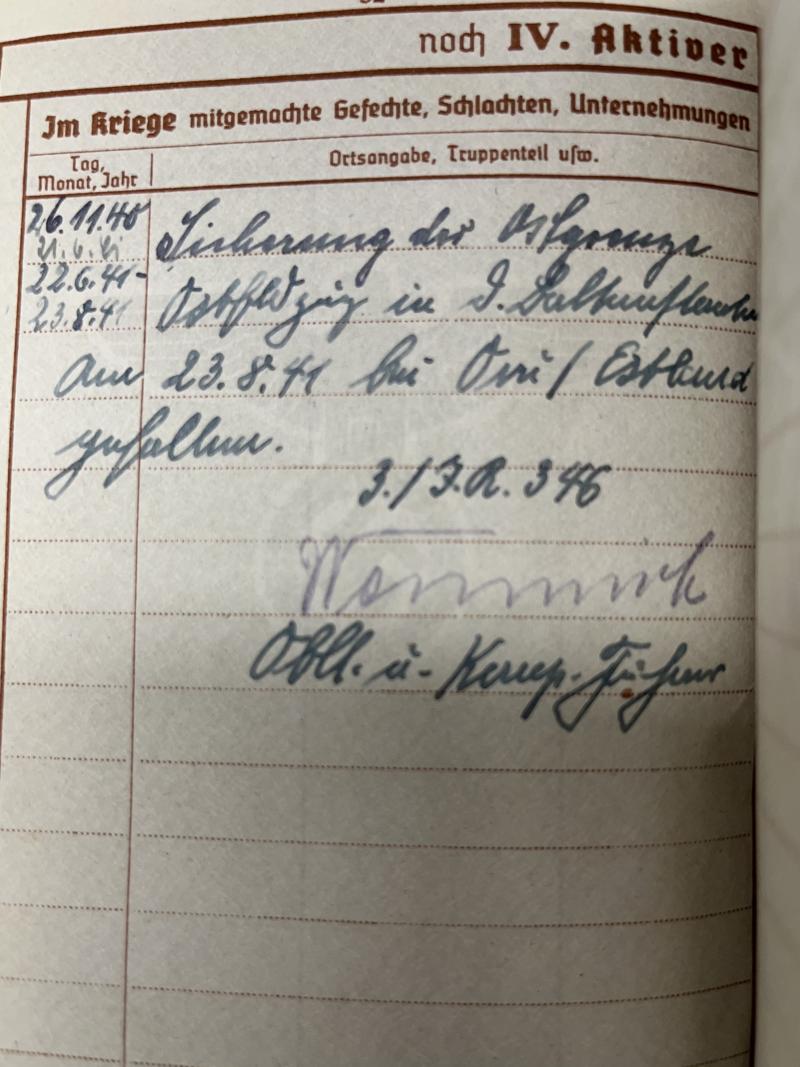 noch IV. Aktiver
Im Kriege mitgemachte Gefechte, Schlachten, Unternehmungen
Tag, Monat, Jahr
Ortsangabe, Truppenteil usw.
26.11.40 Sicherung der Ostgrenze
21.6.41
22.6.41- Ostfeldzug in d. Baltenstaaten
23.8.41
Am 23.8.41 bei / Estland
gefallen.
3./I.R. 346
Oblt. u. Komp. Führer